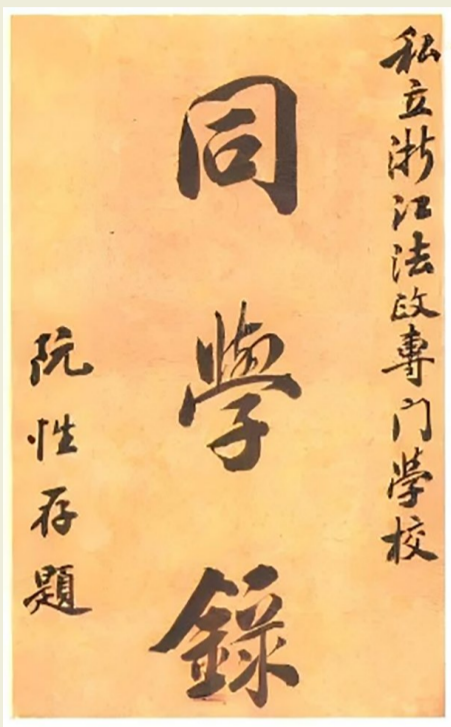 私立浙江法政專門學校
同學錄
阮性存題